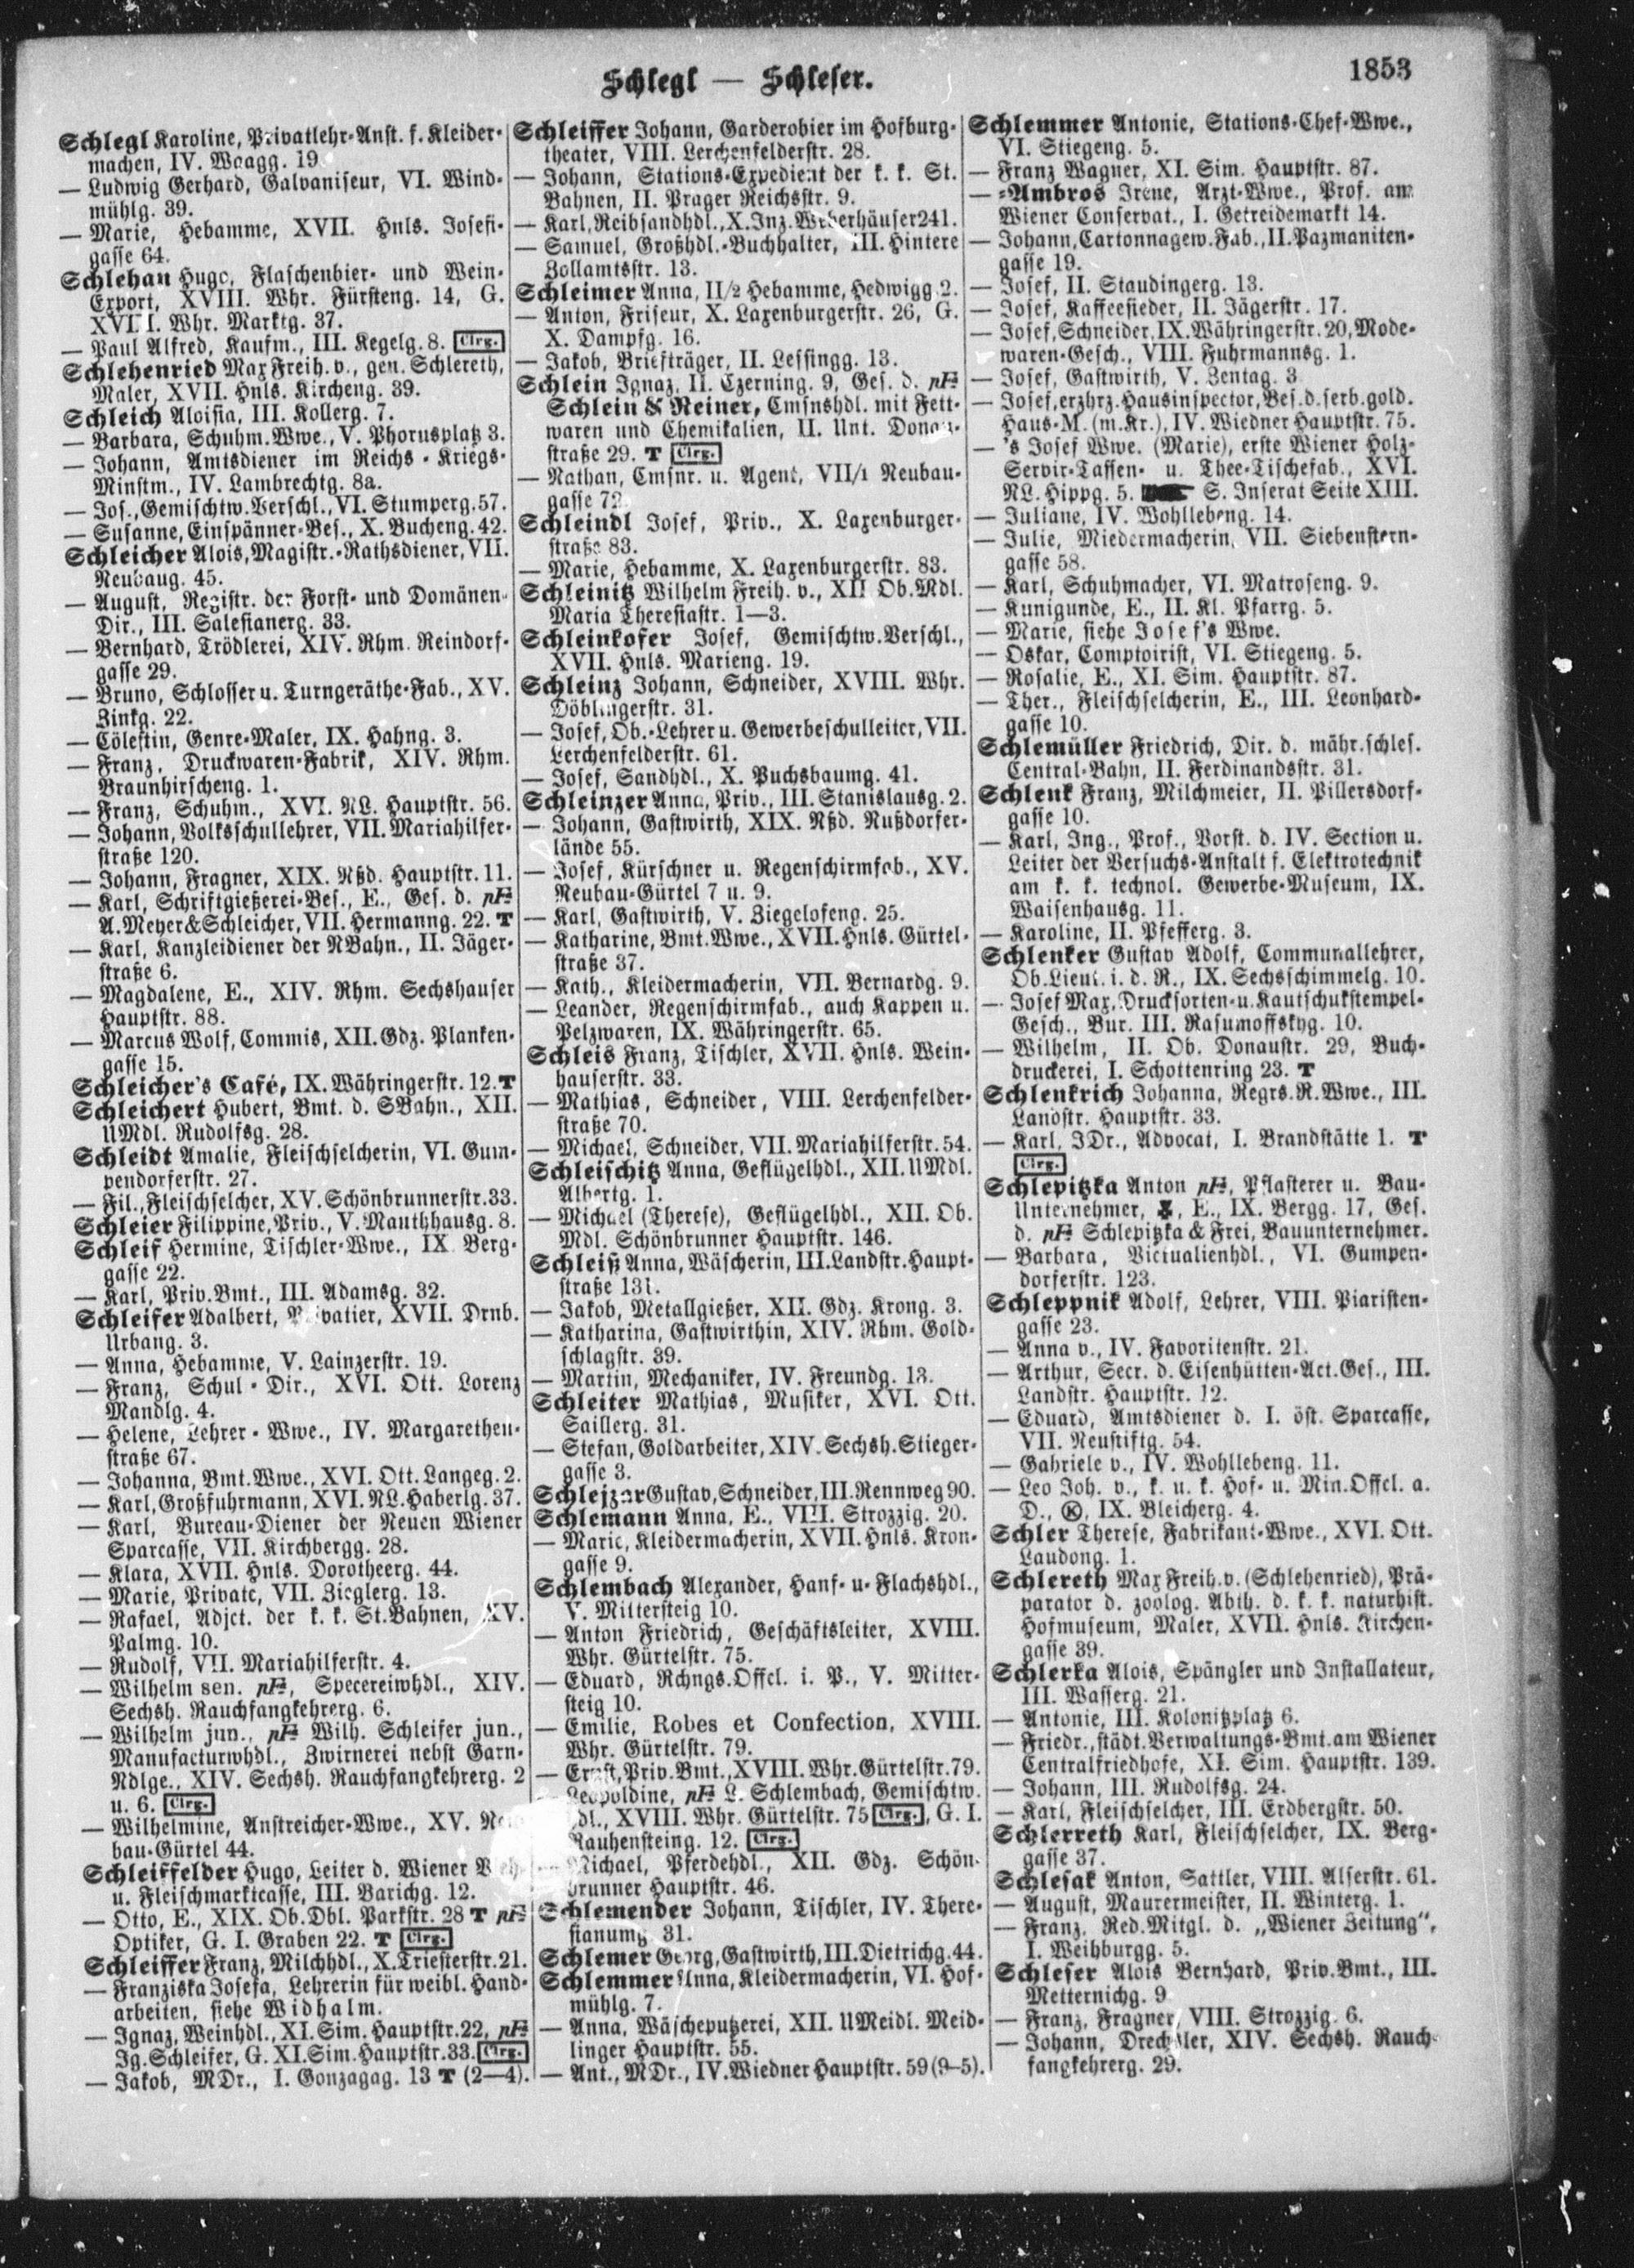 Schlegl — Schleser.
1853
Schlegl Karoline, Privatlehr-Anst. f. Kleider-
machen, IV. Waagg. 19.
— Ludwig Gerhard, Galvaniseur, VI. Wind-
mühlg. 39.
— Marie, Hebamme, XVII. Hnls. Josefi-
gasse 64.
Schlehan Hugo, Flaschenbier- und Wein-
Export, XVIII. Whr. Fürsteng. 14, G.
XVIII. Whr. Marktg. 37.
— Paul Alfred, Kaufm., III. Kegelg. 8. Clrg.
Schlehenried Max Freih. v., gen. Schlereth,
Maler, XVII. Hnls. Kircheng. 39.
Schleich Aloisia, III. Kollerg. 7.
— Barbara, Schuhm. Wwe., V. Phorusplatz 3.
— Johann, Amtsdiener im Reichs-Kriegs-
Minstm., IV. Lambrechtg. 8a.
— Jos., Gemischtw. Verschl., VI. Stumperg. 57.
— Susanne, Einspänner-Bes., X. Bucheng. 42.
Schleicher Alois, Magistr.-Rathsdiener, VII.
Neubaug. 45.
— August, Registr. der Forst- und Domänen-
Dir., III. Salesianerg. 33.
— Bernhard, Trödlerei, XIV. Rhm. Reindorf-
gasse 29.
— Bruno, Schlosser u. Turngeräthe-Fab., XV.
Zinkg. 22.
— Cölestin, Genre-Maler, IX. Hahng. 3.
— Franz, Druckwaren-Fabrik, XIV. Rhm.
Braunhirscheng. 1.
— Franz, Schuhm., XVI. NL. Hauptstr. 56.
— Johann, Volksschullehrer, VII. Mariahilfer-
straße 120.
— Johann, Fragner, XIX. Nßd. Hauptstr. 11.
— Karl, Schriftgießerei-Bes., E., Ges. d. pF
A. Meyer & Schleicher, VII. Hermanng. 22. T
— Karl, Kanzleidiener der NBahn., II. Jäger-
straße 6.
— Magdalene, E., XIV. Rhm. Sechshauser
Hauptstr. 88.
— Marcus Wolf, Commis, XII. Gdz. Planken-
gasse 15.
Schleicher's Café, IX. Währingerstr. 12. T
Schleichert Hubert, Bmt. d. SBahn., XII.
UMdl. Rudolfsg. 28.
Schleidt Amalie, Fleischselcherin, VI. Gum-
pendorferstr. 27.
— Fil., Fleischselcher, XV. Schönbrunnerstr. 33.
Schleier Filippine, Priv., V. Mauthhausg. 8.
Schleif Hermine, Tischler-Wwe., IX. Berg-
gasse 22.
— Karl, Priv. Bmt., III. Adamsg. 32.
Schleifer Adalbert, Privatier, XVII. Drnb.
Urbang. 3.
— Anna, Hebamme, V. Lainzerstr. 19.
— Franz, Schul-Dir., XVI. Ott. Lorenz
Mandlg. 4.
— Helene, Lehrer-Wwe., IV. Margarethen-
straße 67.
— Johanna, Bmt. Wwe., XVI. Ott. Langeg. 2.
— Karl, Großfuhrmann, XVI. NL. Haberlg. 37.
— Karl, Bureau-Diener der Neuen Wiener
Sparcasse, VII. Kirchbergg. 28.
— Klara, XVII. Hnls. Dorotheerg. 44.
— Marie, Private, VII. Zieglerg. 13.
— Rafael, Adjct. der k. k. St. Bahnen, XV.
Palmg. 10.
— Rudolf, VII. Mariahilferstr. 4.
— Wilhelm sen. pF, Specereiwhdl., XIV.
Sechsh. Rauchfangkehrerg. 6.
— Wilhelm jun., pF Wilh. Schleifer jun.,
Manufacturwhdl., Zwirnerei nebst Garn-
Ndlge., XIV. Sechsh. Rauchfangkehrerg. 2
u. 6. Clrg.
— Wilhelmine, Anstreicher-Wwe., XV.
bau-Gürtel 44.
Schleiffelder Hugo, Leiter d. Wiener
u. Fleischmarktcasse, III. Barichg. 12.
— Otto, E., XIX. Ob. Dbl. Parkstr. 28 T pF
Optiker, G. I. Graben 22. T Clrg.
Schleiffer Franz, Milchhdl., X. Triesterstr. 21.
— Franziska Josefa, Lehrerin für weibl. Hand-
arbeiten, siehe Widhalm.
— Ignaz, Weinhdl., XI. Sim. Hauptstr. 22, pF
Ig. Schleifer, G. XI. Sim. Hauptstr. 33. Clrg.
— Jakob, MDr., I. Gonzagag. 13 T (2—4).
Schleiffer Johann, Garderobier im Hofburg-
theater, VIII. Lerchenfelderstr. 28.
— Johann, Stations-Expedient der k. k. St.
Bahnen, II. Prager Reichsstr. 9.
— Karl, Reibsandhdl., X. Inz. Weberhäuser 241.
— Samuel, Großhdl.-Buchhalter, III. Hintere
Zollamtsstr. 13.
Schleimer Anna, II/2 Hebamme, Hedwigg. 2.
— Anton, Friseur, X. Laxenburgerstr. 26, G.
X. Dampfg. 16.
— Jakob, Briefträger, II. Lessingg. 13.
Schlein Ignaz, II. Czerning. 9, Ges. d. pF
Schlein & Reiner, Cmsnshdl. mit Fett-
waren und Chemikalien, II. Unt. Donau-
straße 29. T Clrg.
— Nathan, Cmsnr. u. Agent, VII/1 Neubau-
gasse 72.
Schleindl Josef, Priv., X. Laxenburger-
straße 83.
— Marie, Hebamme, X. Laxenburgerstr. 83.
Schleinitz Wilhelm Freih. v., XII Ob. Mdl.
Maria Theresiastr. 1—3.
Schleinkofer Josef, Gemischtw. Verschl.,
XVII. Hnls. Marieng. 19.
Schleinz Johann, Schneider, XVIII. Whr.
Döblingerstr. 31.
— Josef, Ob.-Lehrer u. Gewerbeschulleiter, VII.
Lerchenfelderstr. 61.
— Josef, Sandhdl., X. Puchsbaumg. 41.
Schleinzer Anna, Priv., III. Stanislausg. 2.
— Johann, Gastwirth, XIX. Nßd. Nußdorfer-
lände 55.
— Josef, Kürschner u. Regenschirmfab., XV.
Neubau-Gürtel 7 u. 9.
— Karl, Gastwirth, V. Ziegelofeng. 25.
— Katharine, Bmt. Wwe., XVII. Hnls. Gürtel-
straße 37.
— Kath., Kleidermacherin, VII. Bernardg. 9.
— Leander, Regenschirmfab., auch Kappen u.
Pelzwaren, IX. Währingerstr. 65.
Schleis Franz, Tischler, XVII. Hnls. Wein-
hauserstr. 33.
— Mathias, Schneider, VIII. Lerchenfelder-
straße 70.
— Michael, Schneider, VII. Mariahilferstr. 54.
Schleischitz Anna, Geflügelhdl., XII. UMdl.
Albertg. 1.
— Michael (Therese), Geflügelhdl., XII. Ob.
Mdl. Schönbrunner Hauptstr. 146.
Schleiß Anna, Wäscherin, III. Landstr. Haupt-
straße 131.
— Jakob, Metallgießer, XII. Gdz. Krong. 3.
— Katharina, Gastwirthin, XIV. Rhm. Gold-
schlagstr. 39.
— Martin, Mechaniker, IV. Freundg. 13.
Schleiter Mathias, Musiker, XVI. Ott.
Saillerg. 31.
— Stefan, Goldarbeiter, XIV. Sechsh. Stieger-
gasse 3.
Schlejzar Gustav, Schneider, III. Rennweg 90.
Schlemann Anna, E., VIII. Strozzig. 20.
— Marie, Kleidermacherin, XVII. Hnls. Kron-
gasse 9.
Schlembach Alexander, Hanf- u- Flachshdl.,
V. Mittersteig 10.
— Anton Friedrich, Geschäftsleiter, XVIII.
Whr. Gürtelstr. 75.
— Eduard, Rchngs. Offcl. i. P., V. Mitter-
steig 10.
— Emilie, Robes et Confection, XVIII.
Whr. Gürtelstr. 79.
— Ernst, Priv. Bmt., XVIII. Whr. Gürtelstr. 79.
Leopoldine, pF L. Schlembach, Gemischtw.
dl., XVIII. Whr. Gürtelstr. 75 Clrg., G. I.
Rauhensteing. 12. Clrg.
Michael, Pferdehdl., XII. Gdz. Schön-
brunner Hauptstr. 46.
Schlemender Johann, Tischler, IV. There-
sianumg. 31.
Schlemer Georg, Gastwirth, III. Dietrichg. 44.
Schlemmer Anna, Kleidermacherin, VI. Hof-
mühlg. 7.
— Anna, Wäscheputzerei, XII. UMeidl. Meid-
linger Hauptstr. 55.
— Ant., MDr., IV. Wiedner Hauptstr. 59 (9—5).
Schlemmer Antonie, Stations-Chef-Wwe.,
VI. Stiegeng. 5.
— Franz Wagner, XI. Sim. Hauptstr. 87.
— -Ambros Irene, Arzt-Wwe., Prof. am
Wiener Conservat., I. Getreidemarkt 14.
— Johann, Cartonnagew. Fab., II. Pazmaniten-
gasse 19.
— Josef, II. Staudingerg. 13.
— Josef, Kaffeesieder, II. Jägerstr. 17.
— Josef, Schneider, IX. Währingerstr. 20, Mode-
waren-Gesch., VIII. Fuhrmannsg. 1.
— Josef, Gastwirth, V. Zentag. 3
— Josef, erzhrz. Hausinspector, Bes. d. serb. gold.
Haus-M. (m. Kr.), IV. Wiedner Hauptstr. 75.
— 's Josef Wwe. (Marie), erste Wiener Holz-
Servir-Tassen- u. Thee-Tischefab., XVI.
NL. Hippg. 5. S. Inserat Seite XIII.
— Juliane, IV. Wohllebeng. 14.
— Julie, Miedermacherin, VII. Siebenstern-
gasse 58.
— Karl, Schuhmacher, VI. Matroseng. 9.
— Kunigunde, E., II. Kl. Pfarrg. 5.
— Marie, siehe Josef's Wwe.
— Oskar, Comptoirist, VI. Stiegeng. 5.
— Rosalie, E., XI. Sim. Hauptstr. 87.
— Ther., Fleischselcherin, E., III. Leonhard-
gasse 10.
Schlemüller Friedrich, Dir. d. mähr. schles.
Central-Bahn, II. Ferdinandsstr. 31.
Schlenk Franz, Milchmeier, II. Pillersdorf-
gasse 10.
— Karl, Ing., Prof., Vorst. d. IV. Section u.
Leiter der Versuchs-Anstalt f. Elektrotechnik
am k. k. technol. Gewerbe-Museum, IX.
Waisenhausg. 11.
— Karoline, II. Pfefferg. 3.
Schlenker Gustav Adolf, Communallehrer,
Ob. Lieut. i. d. R., IX. Sechsschimmelg. 10.
— Josef Max, Drucksorten- u. Kautschukstempel-
Gesch., Bur. III. Rasumoffskyg. 10.
— Wilhelm, II. Ob. Donaustr. 29, Buch-
druckerei, I. Schottenring 23. T
Schlenkrich Johanna, Regrs. R. Wwe., III.
Landstr. Hauptstr. 33.
— Karl, JDr., Advocat, I. Brandstätte 1. T
Clrg.
Schlepitzka Anton pF, Pflasterer u. Bau-
Unternehmer, E., IX. Bergg. 17, Ges.
d. pF Schlepitzka & Frei, Bauunternehmer.
— Barbara, Victualienhdl., VI. Gumpen-
dorferstr. 123.
Schleppnik Adolf, Lehrer, VIII. Piaristen-
gasse 23.
— Anna v., IV. Favoritenstr. 21.
— Arthur, Secr. d. Eisenhütten-Act. Ges., III.
Landstr. Hauptstr. 12.
— Eduard, Amtsdiener d. I. öst. Sparcasse,
VII. Neustiftg. 54.
— Gabriele v., IV. Wohllebeng. 11.
— Leo Joh. v., k. u. k. Hof- u. Min. Offcl. a.
D., Ⓚ, IX. Bleicherg. 4.
Schler Therese, Fabrikant-Wwe., XVI. Ott.
Laudong. 1.
Schlereth Max Freih. v. (Schlehenried), Prä-
parator d. zoolog. Abth. d. k. k. naturhist.
Hofmuseum, Maler, XVII. Hnls. Kirchen-
gasse 39.
Schlerka Alois, Spängler und Installateur,
III. Wasserg. 21.
— Antonie, III. Kolonitzplatz 6.
— Friedr., städt. Verwaltungs-Bmt. am Wiener
Centralfriedhofe, XI. Sim. Hauptstr. 139.
— Johann, III. Rudolfsg. 24.
— Karl, Fleischselcher, III. Erdbergstr. 50.
Schlerreth Karl, Fleischselcher, IX. Berg-
gasse 37.
Schlesak Anton, Sattler, VIII. Alserstr. 61.
— August, Maurermeister, II. Winterg. 1.
— Franz, Red. Mitgl. d. „Wiener Zeitung",
I. Weihburgg. 5.
Schleser Alois Bernhard, Priv. Bmt., III.
Metternichg. 9
— Franz, Fragner, VIII. Strozzig. 6.
— Johann, Drechsler, XIV. Sechsh. Rauch-
fangkehrerg. 29.